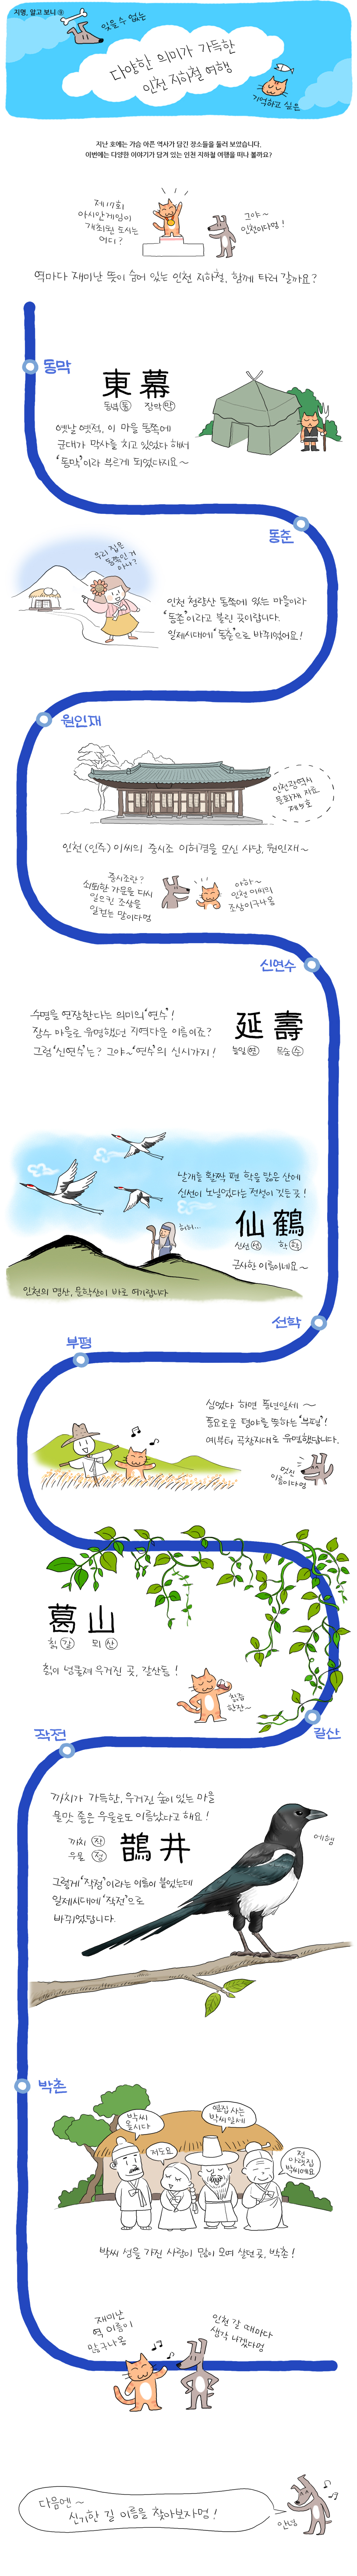 지명, 알고 보니 ⑨
잊을 수 없는
다양한 의미가 가득한
인천 지하철 여행
기억하고 싶은
지난 호에는 가슴 아픈 역사가 담긴 장소들을 둘러 보았습니다.
이번에는 다양한 이야기가 담겨 있는 인천 지하철 여행을 떠나 볼까요?
제17회
아시안게임이
개최된 도시는
어디?
그야~
인천이다멍!
역마다 재미난 뜻이 숨어 있는 인천 지하철, 함께 타러 갈까요?
동막
東幕
동녘 동 장막 막
옛날 옛적, 이 마을 동쪽에
군대가 막사를 치고 있었다 해서
'동막'이라 부르게 되었다지요~
동춘
우리 집은
동쪽인 거
아나?
인천 청량산 동쪽에 있는 마을이라
'동촌'이라고 불린 곳이랍니다.
일제시대에 '동춘'으로 바뀌었어요!
원인재
인천광역시
문화재 자료
제5호
인천(인주) 이씨의 중시조 이허겸을 모신 사당, 원인재~
중시조란?
쇠퇴한 가문을 다시
일으킨 조상을
일컫는 말이다멍
아하~
인천 이씨의
조상이구나옹
신연수
수명을 연장한다는 의미의 '연수'!
장수 마을로 유명했던 지역다운 이름이죠?
그럼 '신연수'는? 그야~ '연수'의 신시가지!
延壽
늘일 연 목숨 수
날개를 활짝 편 학을 닮은 산에
신선이 노닐었다는 전설이 깃든 곳!
仙鶴
신선 선 학 학
근사한 이름이네요~
허허...
인천의 명산, 문학산이 바로 여기랍니다
선학
부평
심었다 하면 풍년일세~
풍요로운 평야를 뜻하는 '부평'!
예부터 곡창지대로 유명했답니다.
멋진
이름이다멍
葛山
칡 갈 뫼 산
칡이 넝쿨째 우거진 곳, 갈산동!
칡즙
한잔~
갈산
작전
까치가 가득한, 우거진 숲이 있는 마을
물맛 좋은 우물로도 이름났다고 해요!
까치 작
우물 정
鵲井
에헴
그렇게 '작정'이라는 이름이 붙었는데
일제시대에 '작전'으로
바뀌었답니다.
박촌
박씨
올시다
저도요
옆집 사는
박씨일세
전
아랫집
박씨예요
박씨 성을 가진 사람이 많이 모여 살던 곳, 박촌!
재미난
역 이름이
많구나옹
인천 갈 때마다
생각 나겠다멍
다음엔~
신기한 길 이름을 찾아보자멍!
안녕